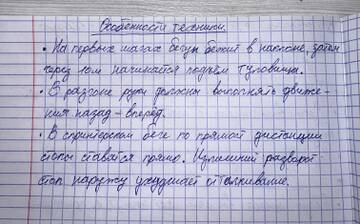 Особенности техники.
• На первых шагах бегун бежит в наклоне, затем
через 10м начинается подъём туловища.
• В разгоне руки должны выполнять движе-
ния назад – вперёд.
• В спринтерском беге по прямой дистанции
стопы ставятся прямо. Излишний разворот
стоп наружу ухудшает отталкивание.